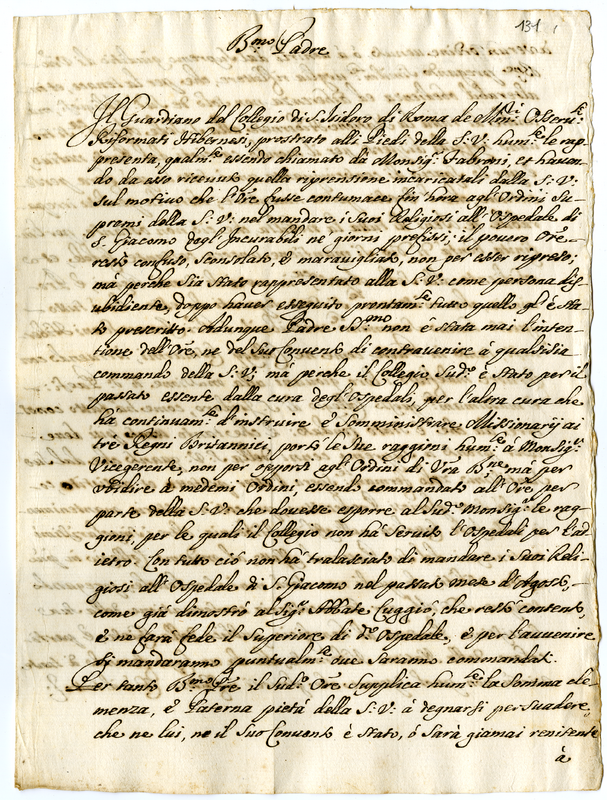 131
B.mo Padre
Il Guardiano del Collegio di S. Isidoro di Roma de Min.ri Osserv.ti
Riformati Hibernesi, prostrato alli Piedi della S. V. hum.te le rap-
presenta, qualm.te essendo chiamato da Monsig.r Fabroni, et haven-
do da esso ricevuto quella riprensione incaricatali dalla S. V:
sul motivo che l'Ore fusse contumace fin hora agl'Ordini Su-
premi della S. V: nel mandare i Suoi Religiosi all'Ospedale di
S. Giacomo degl'Incurabili ne giorni prefissi; il povero Ore
restò confuso, sconsolato, è maravigliato, non per esser ripreso;
mà perche sia stato rappresentato alla S. V: come persona dis-
ubidiente, doppo haver esseguito prontam.te tutto quello gl'è sta-
to prescritto. Adunque Padre SS.mo non è stata mai l'inten-
tione dell'Ore, ne del Suo Convento di contravenire à qualsisia
commando della S. V; mà perche il Collegio Sud.o è stato per il
passato essente dalla cura degl'Ospedali, per l'altra cura che
hà continuam.te d'instruire è somministrare Missionarij ai
tre Regni Britannici, portò le Sue raggioni hum.te à Monsig.r
Vicegerente, non per opporsi agl'Ordini di Vra B.ne mà per
ubidire à medemi Ordini, essendo commandato all'Ore per
parte della S. V: che dovesse esporre al Sud.o Monsig.r le rag-
gioni, per le quali il Collegio non hà servito l'Ospedali per l'ad-
ietro. Con tutto ciò non hà tralasciato di mandare i Suoi Reli-
giosi all'Ospedale di S. Giacomo nel passato mese d'Agosto,
come già dimostrò al Sig.r Abbate Cuggiò, che restò contento,
è ne farà fede il Superiore di d.o Ospedale, è per l'avvenire
si mandaranno puntualm.te due saranno commandati.
Per tanto B.mo Pre il Sud.o Ore Supplica hum.te la Somma cle-
menza, è Paterna pietà della S. V: à degnarsi persuadere,
che ne lui, ne il Suo Convento è stato, ò sarà giamai renitente
à